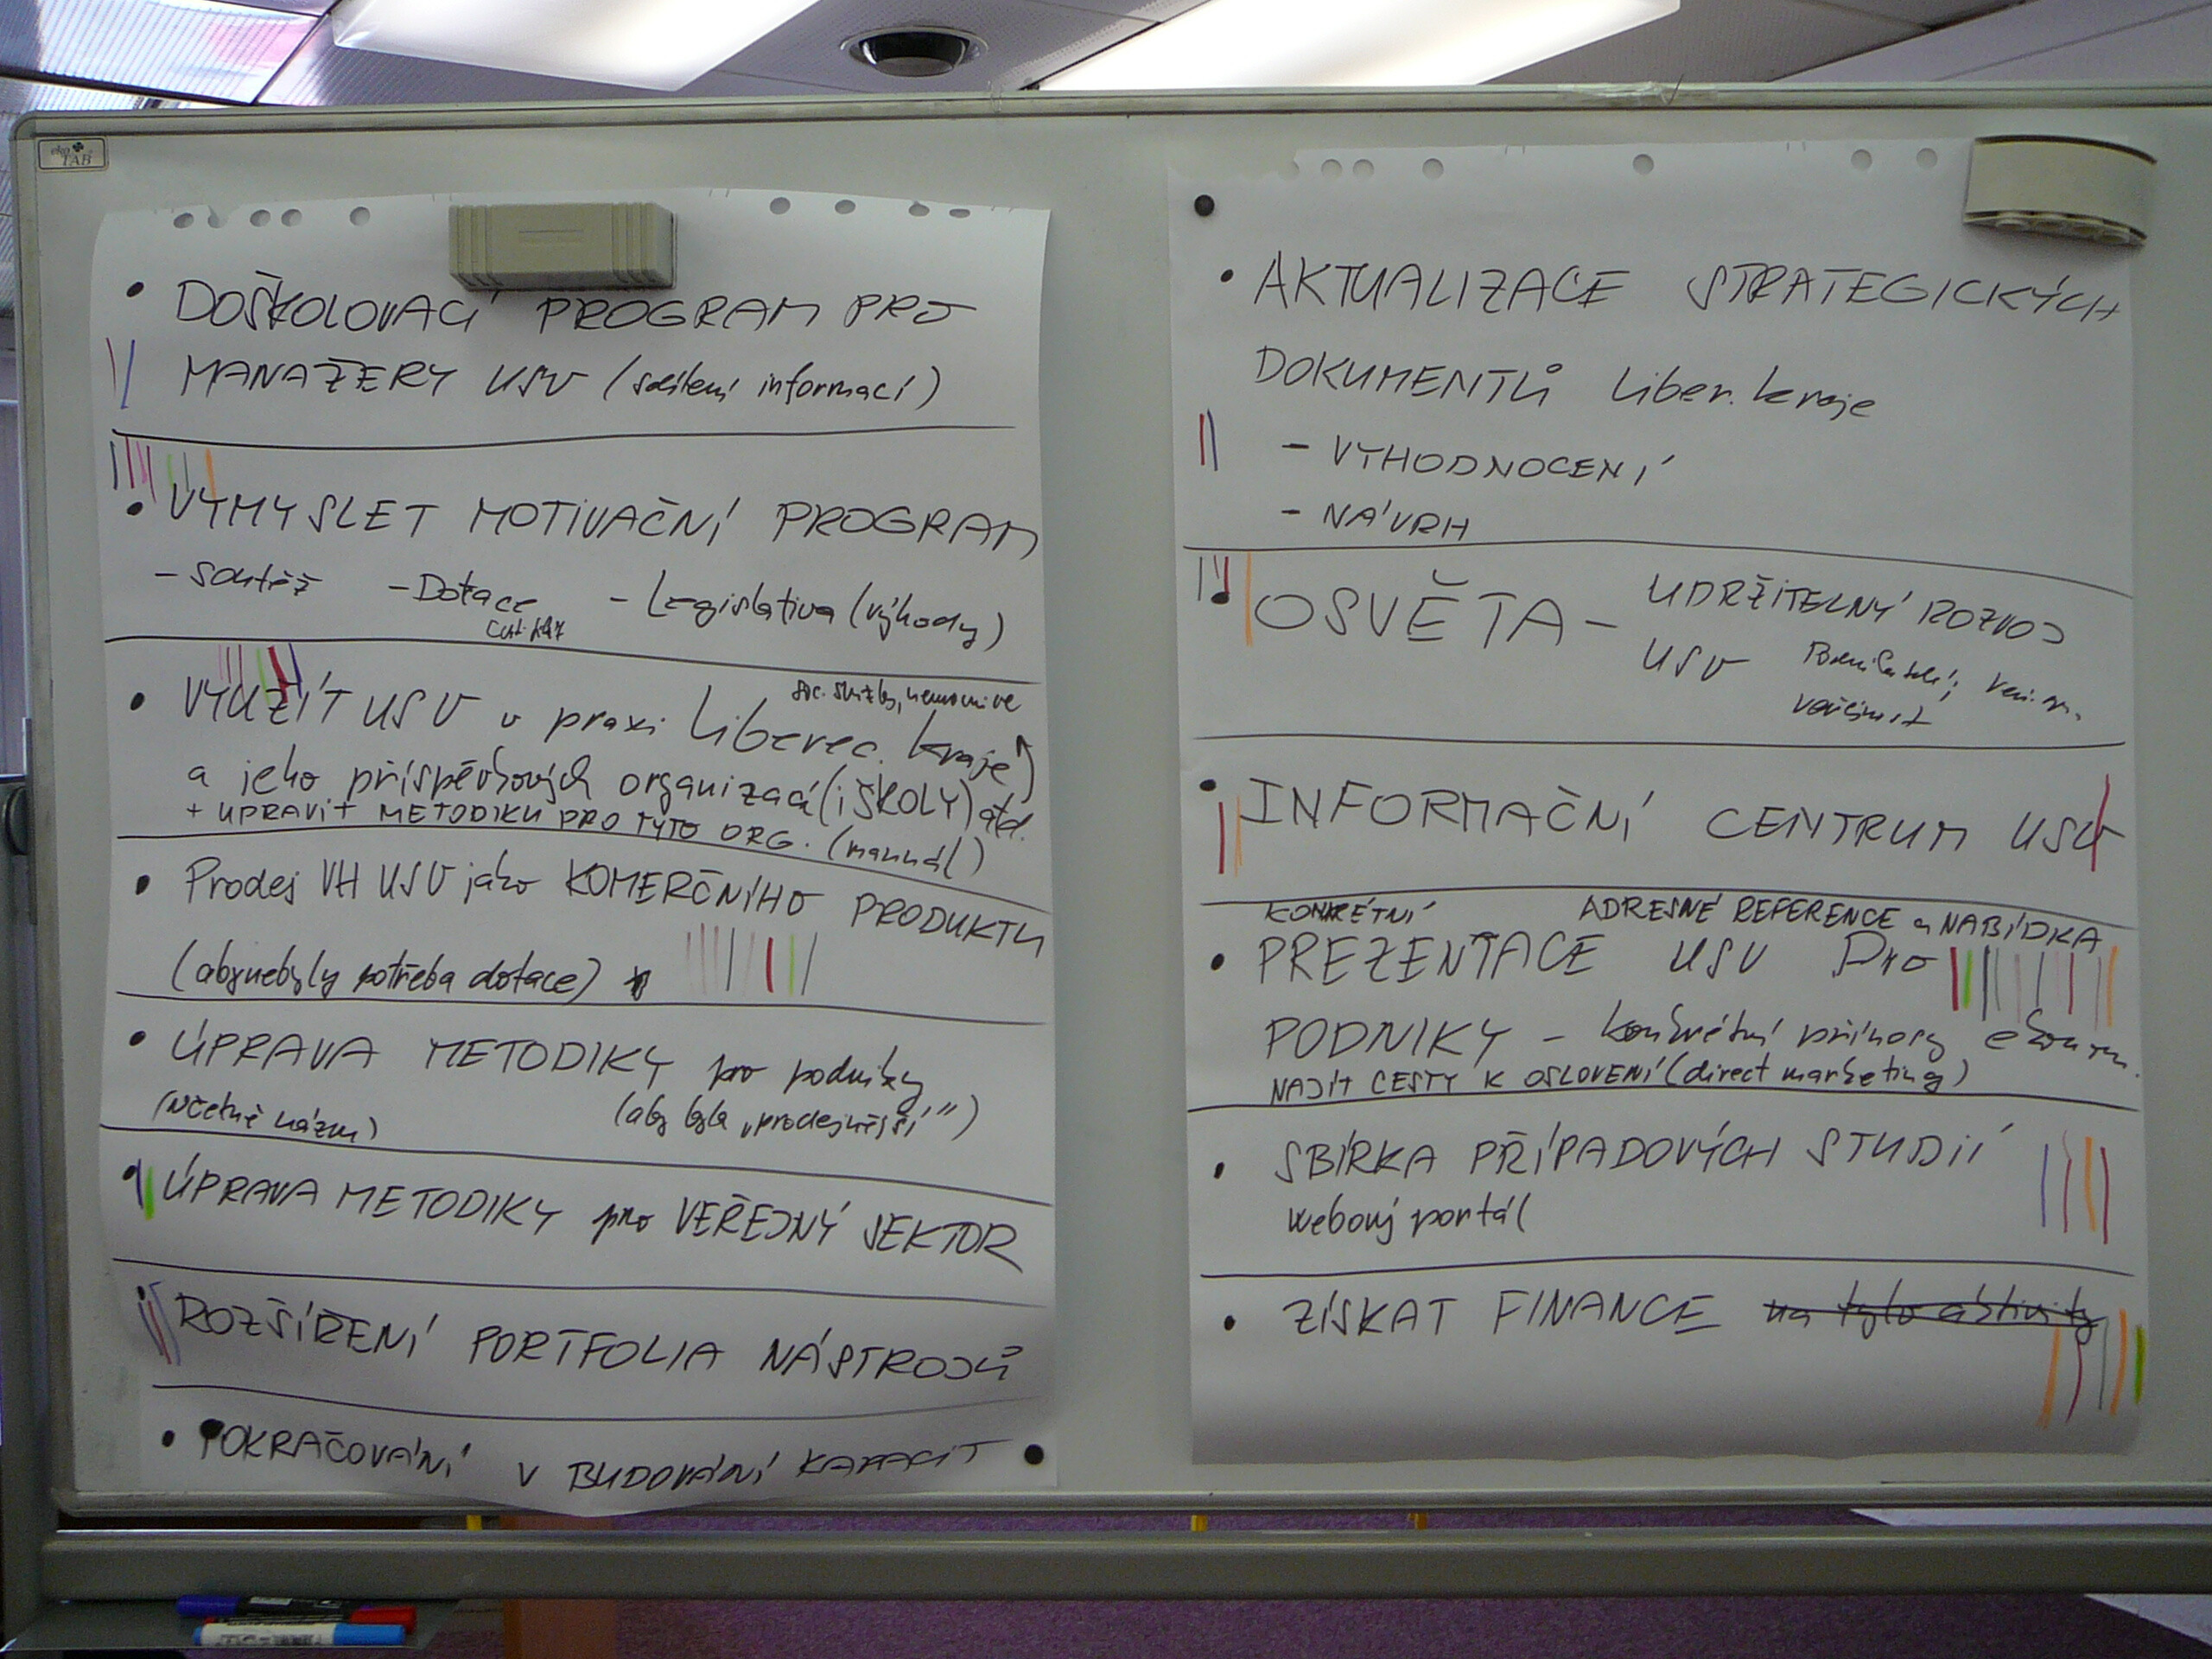 eko TAB
• DOŠKOLOVACÍ PROGRAM PRO
MANAŽERY USV (sdílení informací)
• VYMYSLET MOTIVAČNÍ PROGRAM
- Soutěž - Dotace - Legislativa (výhody)
• VYUŽÍT USV v praxi Liberec. kraje
soc. služby, nemocnice
a jeho příspěvkových organizací (i ŠKOLY) atd.
+ UPRAVIT METODIKU PRO TYTO ORG. (manuál)
• Prodej VH USV jako KOMERČNÍHO PRODUKTU
(aby nebyly potřeba dotace)
• ÚPRAVA METODIKY pro podniky
(včetně názvu) (aby byla „prodejnější")
• ÚPRAVA METODIKY pro VEŘEJNÝ SEKTOR
• ROZŠÍŘENÍ PORTFOLIA NÁSTROJŮ
• POKRAČOVÁNÍ V BUDOVÁNÍ KAPACIT
• AKTUALIZACE STRATEGICKÝCH
DOKUMENTŮ Liber. kraje
- VYHODNOCENÍ
- NÁVRH
• OSVĚTA - UDRŽITELNÝ ROZVOJ
USV
veřejnost
• INFORMAČNÍ CENTRUM USV
KONKRÉTNÍ ADRESNÉ REFERENCE a NABÍDKA
• PREZENTACE USV Pro
PODNIKY - konkrétní přínosy ekonom.
NAJÍT CESTY K OSLOVENÍ (direct marketing)
• SBÍRKA PŘÍPADOVÝCH STUDIÍ
webový portál
• ZÍSKAT FINANCE na tyto aktivity